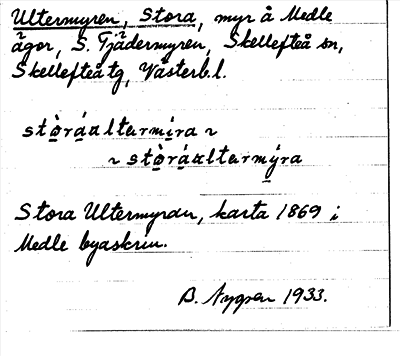 Ultermyren, Stora, myr å Medle
ägor, S. Tjädermyren, Skellefteå sn,
Skellefteå tg, Västerb.l.
stòráaltarmíra ~
~ stòráaltarmýra
Stora Ultermyran, karta 1869 i
Medle byaskrin.
B. Nygren 1933.